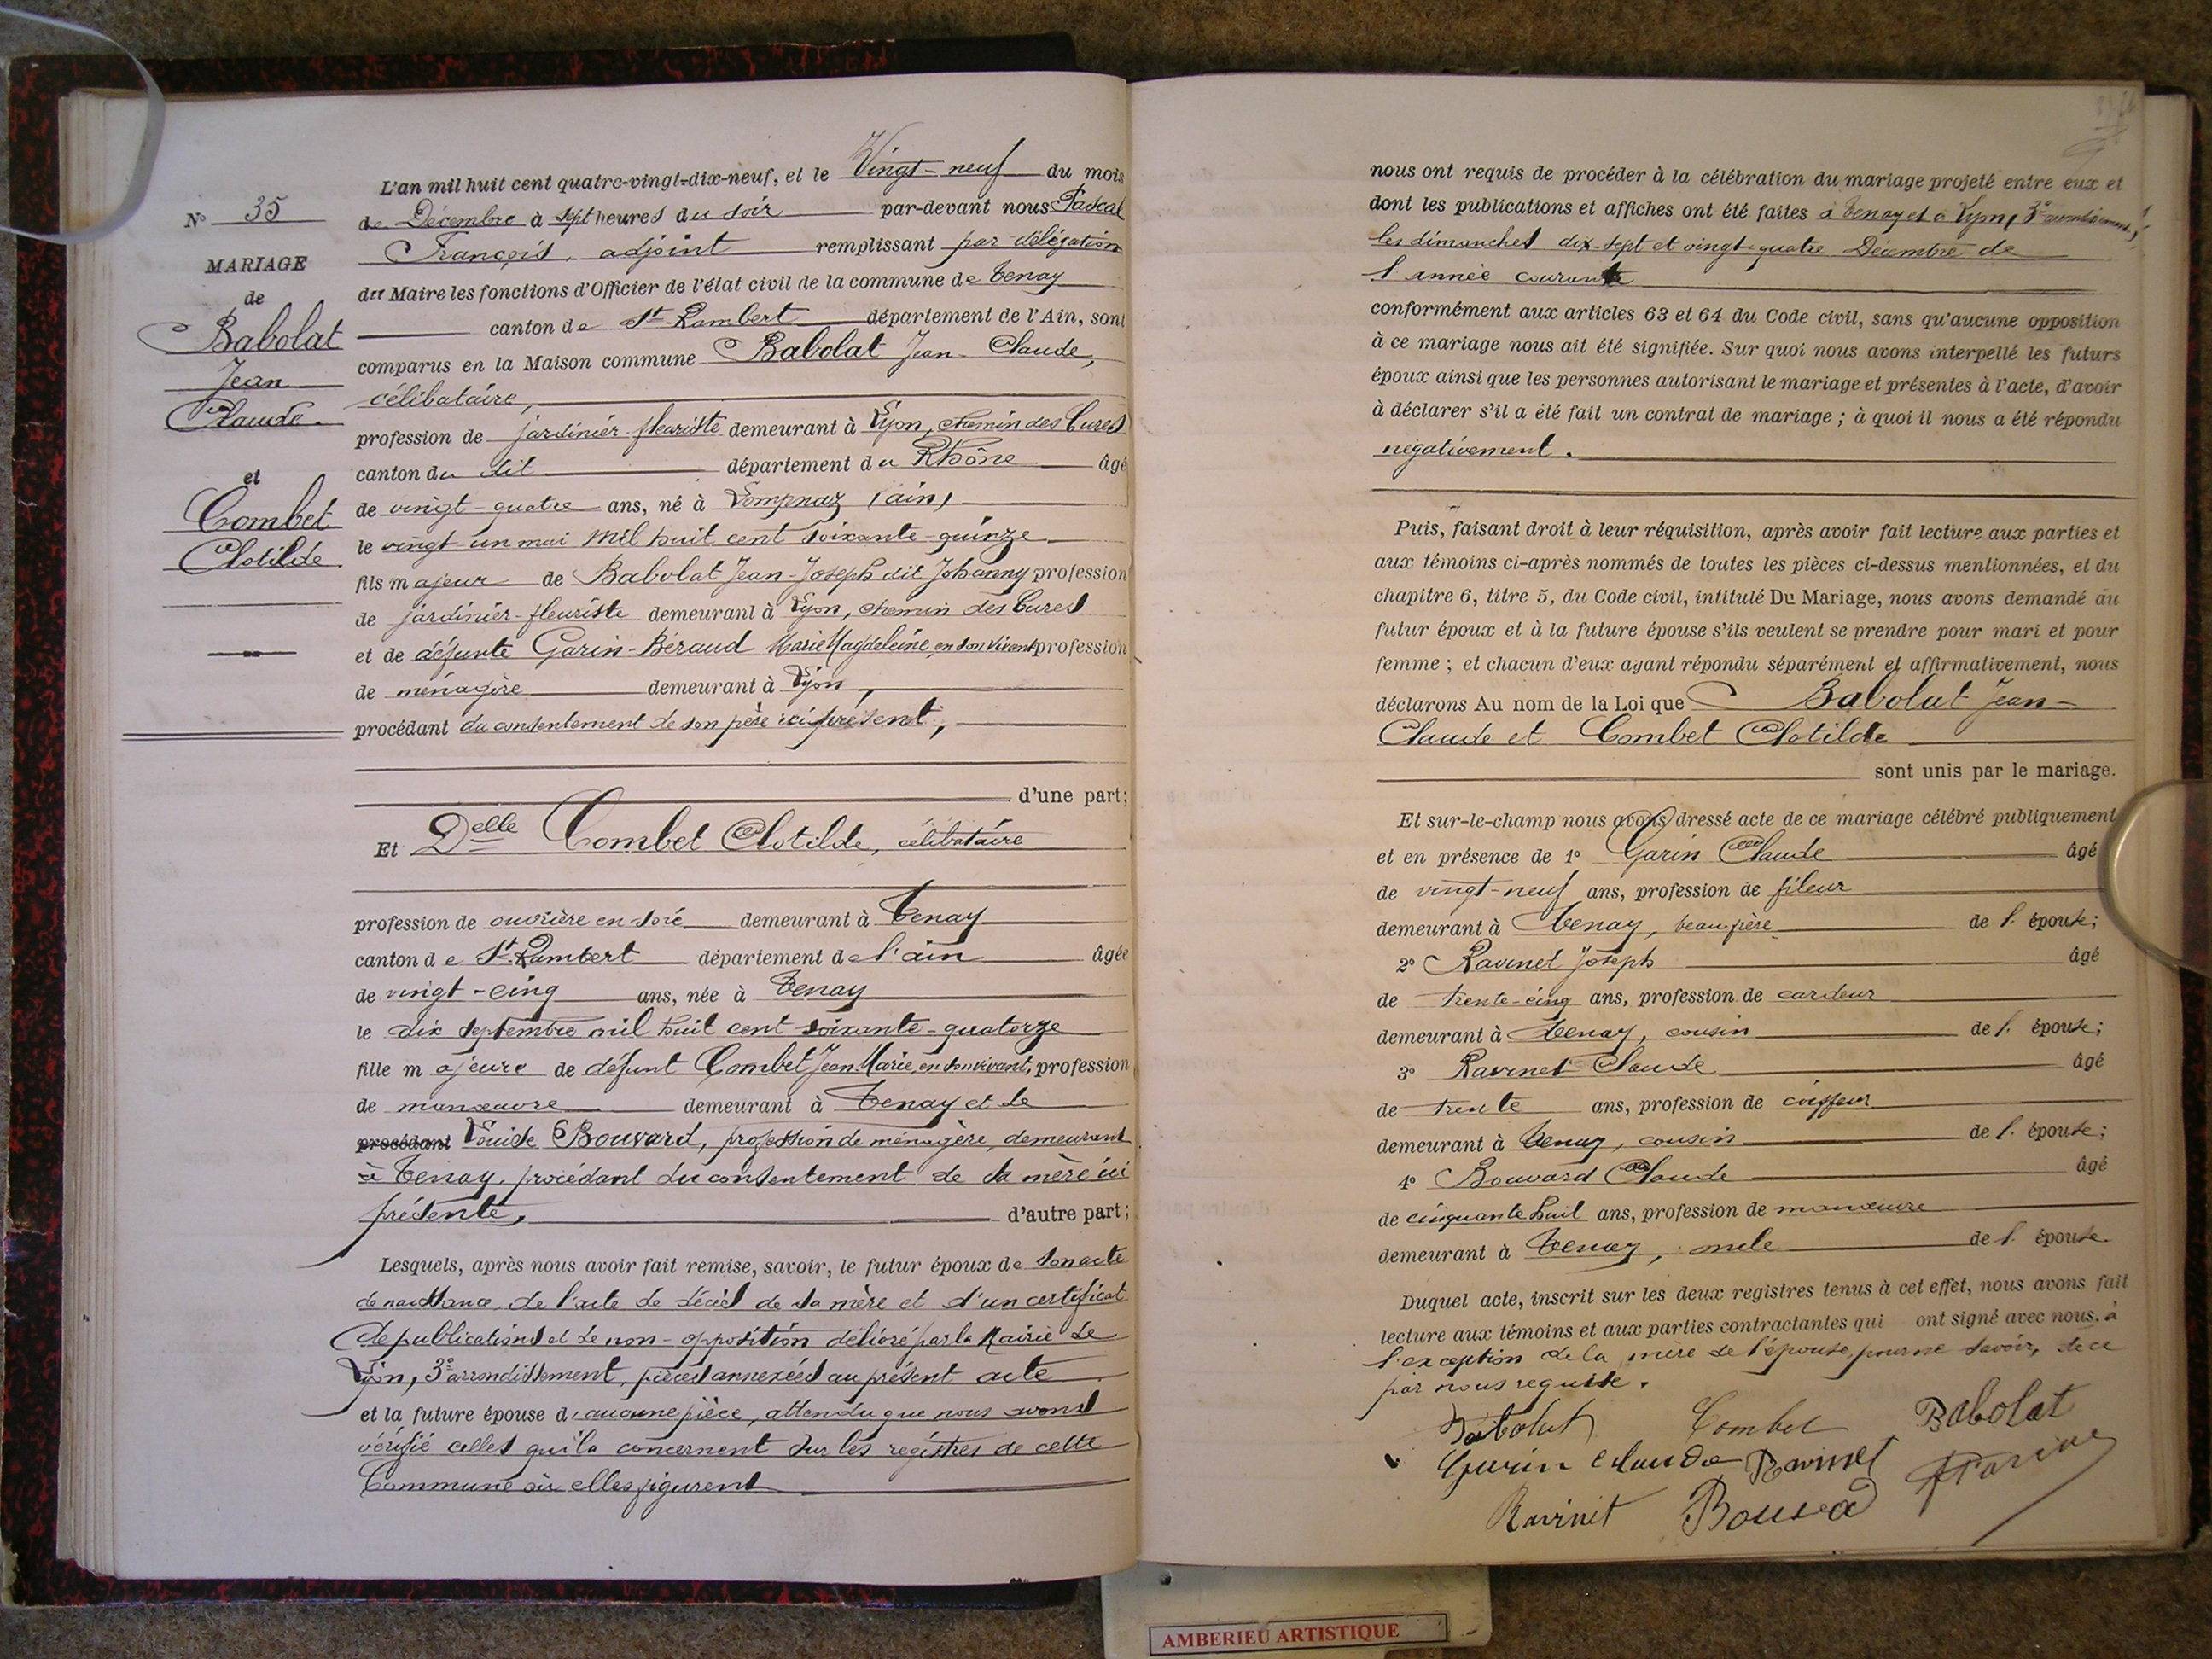 N° 35
MARIAGE
de
Babolat
Jean
Claude.
et
Combet
Clotilde
L'an mil huit cent quatre-vingt-dix-neuf, et le Vingt-neuf du mois
de Décembre à sept heures du soir par-devant nous Pascal
François, adjoint remplissant par délégation
du Maire les fonctions d'Officier de l'état civil de la commune de Tenay
canton de St Rambert département de l'Ain, sont
comparus en la Maison commune Babolat Jean-Claude,
célibataire,
profession de jardinier-fleuriste demeurant à Lyon, chemin des Cures
canton du dit département du Rhône âgé
de vingt-quatre ans, né à Lompnaz (ain)
le vingt-un mai mil huit cent soixante-quinze
fils majeur de Babolat Jean-Joseph dit Johanny profession
de jardinier-fleuriste demeurant à Lyon, chemin des Cures
et de défunte Garin-Béraud Marie Magdeleine, en son vivant profession
de ménagère demeurant à Lyon,
procédant du consentement de son père ici présent,
d'une part;
Et Delle Combet Clotilde, célibataire
profession de ouvrière en soie demeurant à Tenay
canton de St Rambert département de l'ain âgée
de vingt-cinq ans, née à Tenay
le dix septembre mil huit cent soixante-quatorze
fille majeure de défunt Combet Jean Marie, en son vivant, profession
de manœuvre demeurant à Tenay et de
procédant Louise Bouvard, profession de ménagère, demeurant
à Tenay, procédant du consentement de sa mère ici
présente, d'autre part;
Lesquels, après nous avoir fait remise, savoir, le futur époux de son acte
de naissance, de l'acte de décès de sa mère et d'un certificat
de publications et de non-opposition délivré par la Mairie de
Lyon, 3e arrondissement, pièces annexées au présent acte
et la future épouse d'aucune pièce, attendu que nous avons
vérifié celles qui la concernent sur les registres de cette
Commune où elles figurent
nous ont requis de procéder à la célébration du mariage projeté entre eux et
dont les publications et affiches ont été faites à Tenay et à Lyon, 3e arrondissement,
les dimanches dix-sept et vingt-quatre Décembre de
l'année courante
conformément aux articles 63 et 64 du Code civil, sans qu'aucune opposition
à ce mariage nous ait été signifiée. Sur quoi nous avons interpellé les futurs
époux ainsi que les personnes autorisant le mariage et présentes à l'acte, d'avoir
à déclarer s'il a été fait un contrat de mariage ; à quoi il nous a été répondu
négativement.
Puis, faisant droit à leur réquisition, après avoir fait lecture aux parties et
aux témoins ci-après nommés de toutes les pièces ci-dessus mentionnées, et du
chapitre 6, titre 5, du Code civil, intitulé Du Mariage, nous avons demandé au
futur époux et à la future épouse s'ils veulent se prendre pour mari et pour
femme ; et chacun d'eux ayant répondu séparément et affirmativement, nous
déclarons Au nom de la Loi que Babolat Jean-
Claude et Combet Clotilde
sont unis par le mariage.
Et sur-le-champ nous avons dressé acte de ce mariage célébré publiquement
et en présence de 1° Garin Claude âgé
de vingt-neuf ans, profession de fileur
demeurant à Tenay, beau frère de l'épouse;
2° Ravinet Joseph âgé
de trente-cinq ans, profession de cardeur
demeurant à Tenay, cousin de l'épouse;
3° Ravinet Claude âgé
de trente ans, profession de coiffeur
demeurant à Tenay, cousin de l'épouse;
4° Bouvard Claude âgé
de cinquante huit ans, profession de manœuvre
demeurant à Tenay, oncle de l'épouse.
Duquel acte, inscrit sur les deux registres tenus à cet effet, nous avons fait
lecture aux témoins et aux parties contractantes qui ont signé avec nous. à
l'exception de la mère de l'épouse pour ne savoir, de ce
par nous requise.
Babolat Combet Babolat
Garin Claude Ravinet
Ravinet Bouvard
AMBERIEU ARTISTIQUE